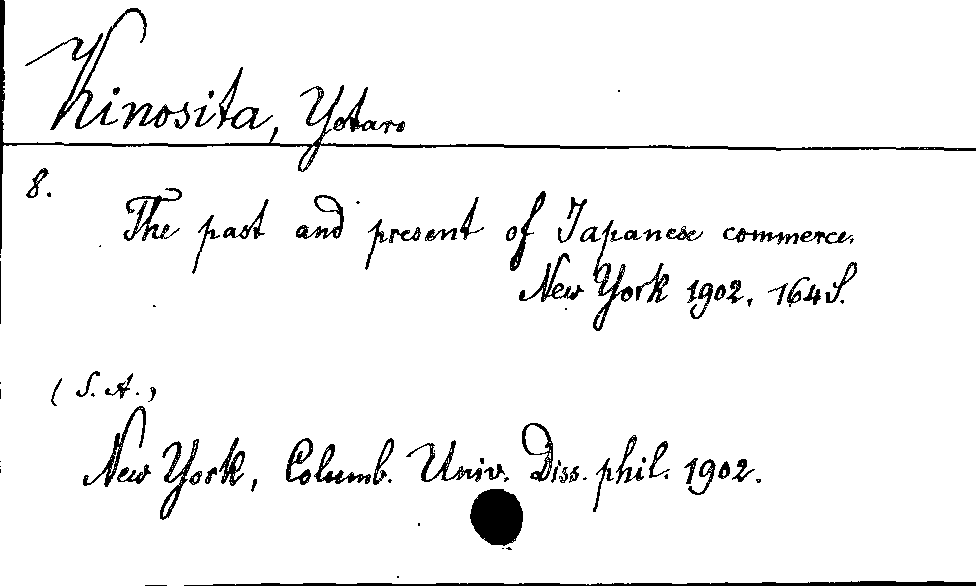 Kinosita, Yotaro
8.
The past and present of Japanese commerce.
New York 1902. 164 S.
(S. A.)
New York, Columb. Univ. Diss. phil. 1902.